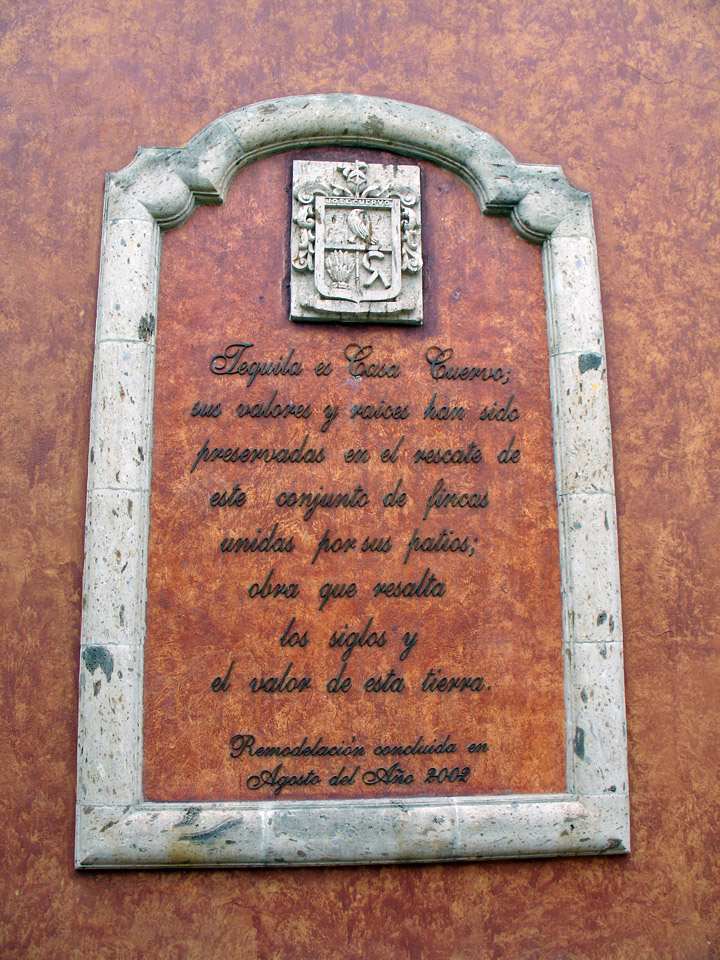 JOSE CUERVO
Tequila es Casa Cuervo;
sus valores y raíces han sido
preservadas en el rescate de
este conjunto de fincas
unidas por sus patios;
obra que resalta
los siglos y
el valor de esta tierra.
Remodelación concluida en
Agosto del Año 2002